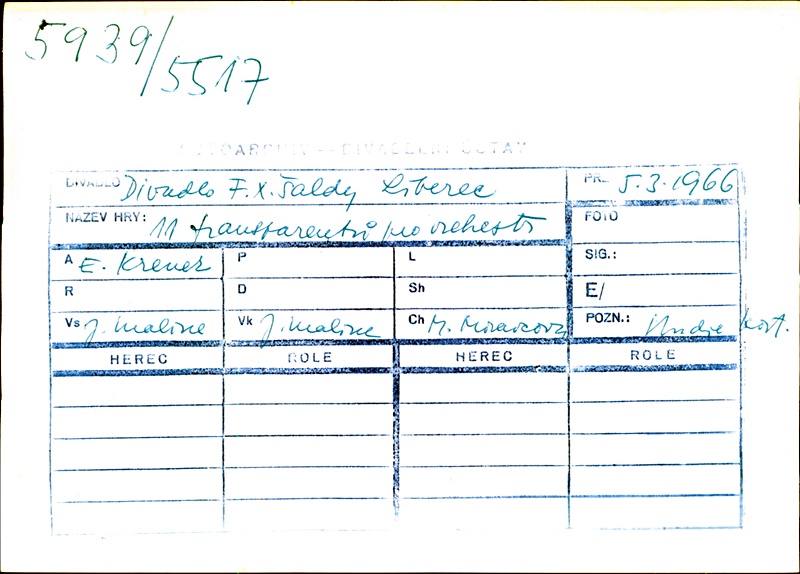 5939/5517
FOTOARCHIV – DIVADELNÍ ÚSTAV
DIVADLO Divadlo F.X. Šaldy Liberec PR. 5.3.1966
NÁZEV HRY: 11 transparentů pro orchestr FOTO
A E. Krenek P L SIG.:
R D Sh E/
Vs J. Malina Vk J. Malina Ch M. Moravcová POZN.:
HEREC ROLE HEREC ROLE